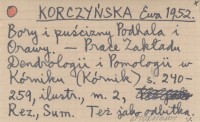 KORCZYŃSKA Ewa 1952.
Bory i puścizny Podhala i
Orawy. — Prace Zakładu
Dendrologii i Pomologii w
Kórniku (Kórnik) s. 240-
259, ilustr., m. 2,
Rez., Sum. Też jako odbitka.